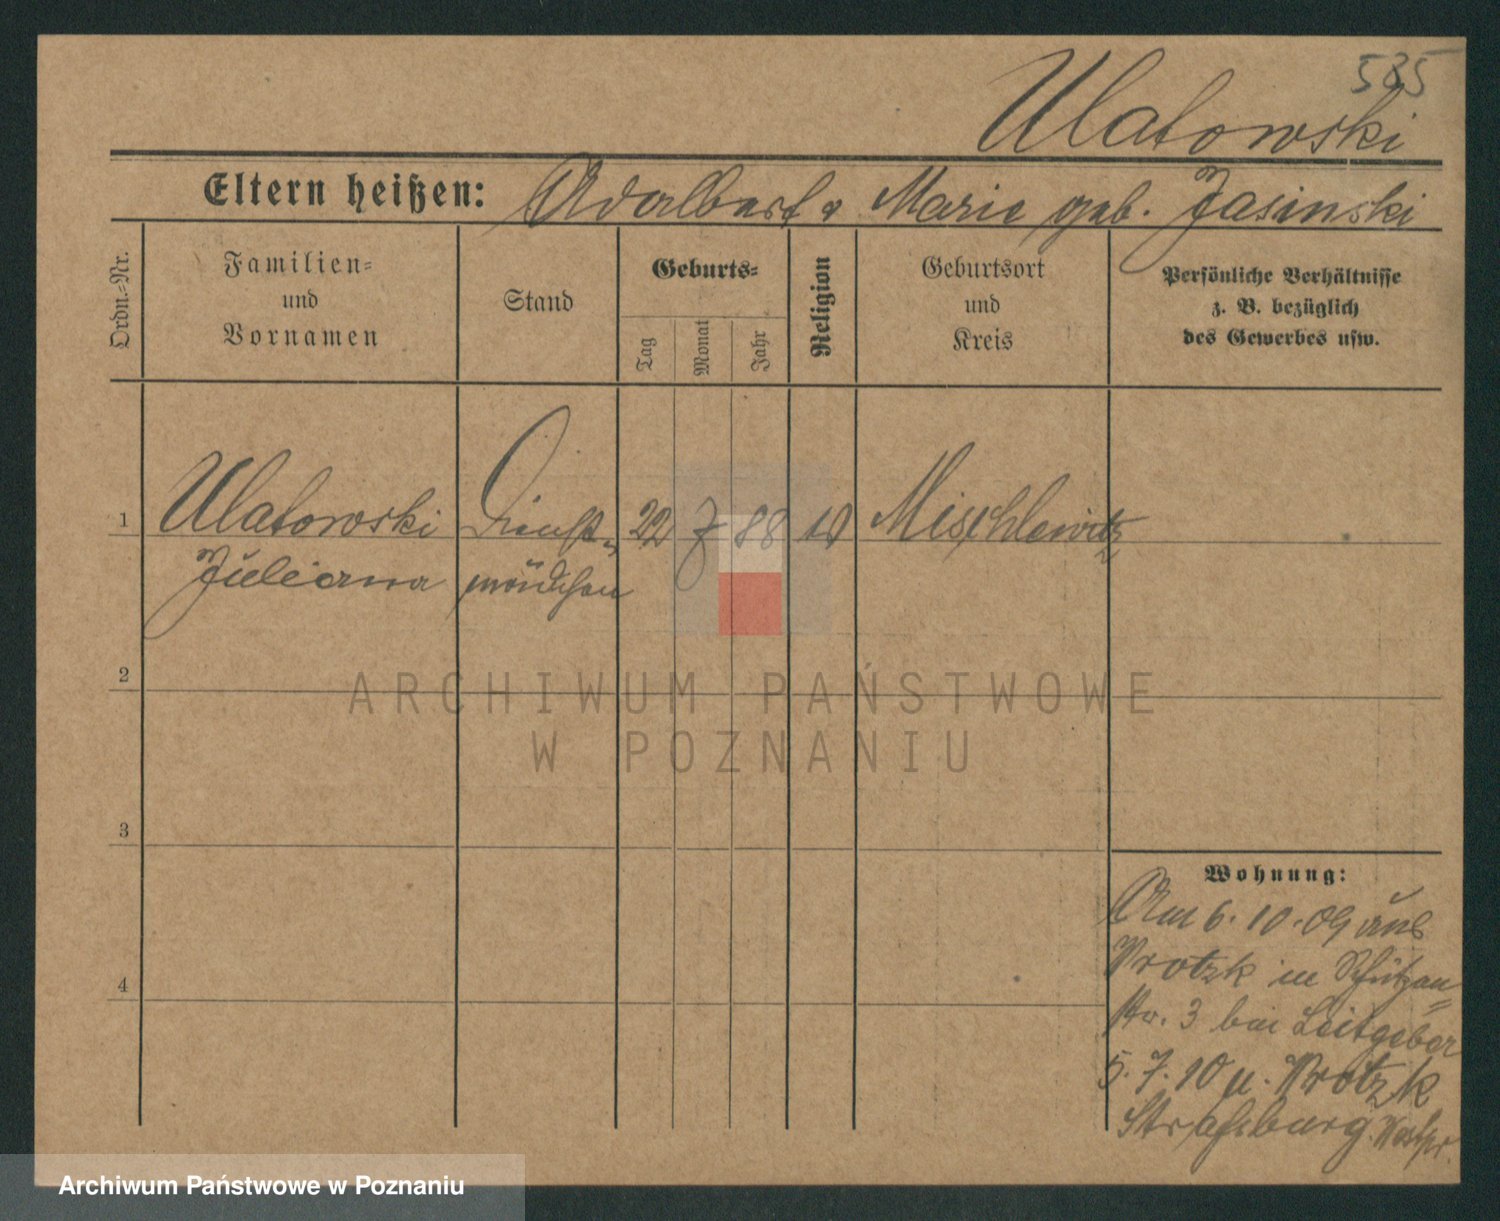 585
Ulatowski
Eltern heißen: Adalbert u Marie geb. Jasinski
Ordn.-Nr.
Familien-
und
Vornamen
Stand
Geburts-
Tag
Monat
Jahr
Religion
Geburtsort
und
Kreis
Persönliche Verhältnisse
z. B. bezüglich
des Gewerbes usw.
1 Ulatowski Dienst- 22 7 88 Mischlewitz
Juliana mädchen
2
3
4
ARCHIWUM PAŃSTWOWE
W POZNANIU
Wohnung:
Am 6. 10. 09 aus
Wrotzk in Schützen=
str. 3 bei Leitgeber
5. 7. 10 n. Wrotzk
Strasburg Westpr.
Archiwum Państwowe w Poznaniu